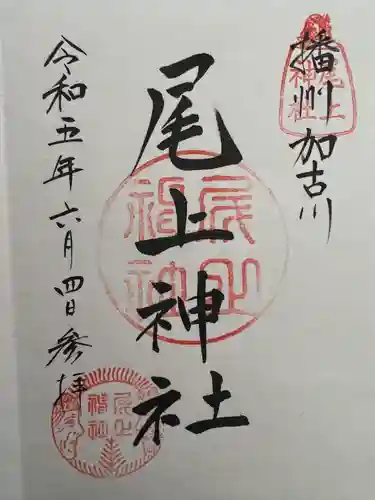 播州加古川
尾上神社
令和五年六月四日参拝
尾上
神社
尾上
神社
尾上
神社